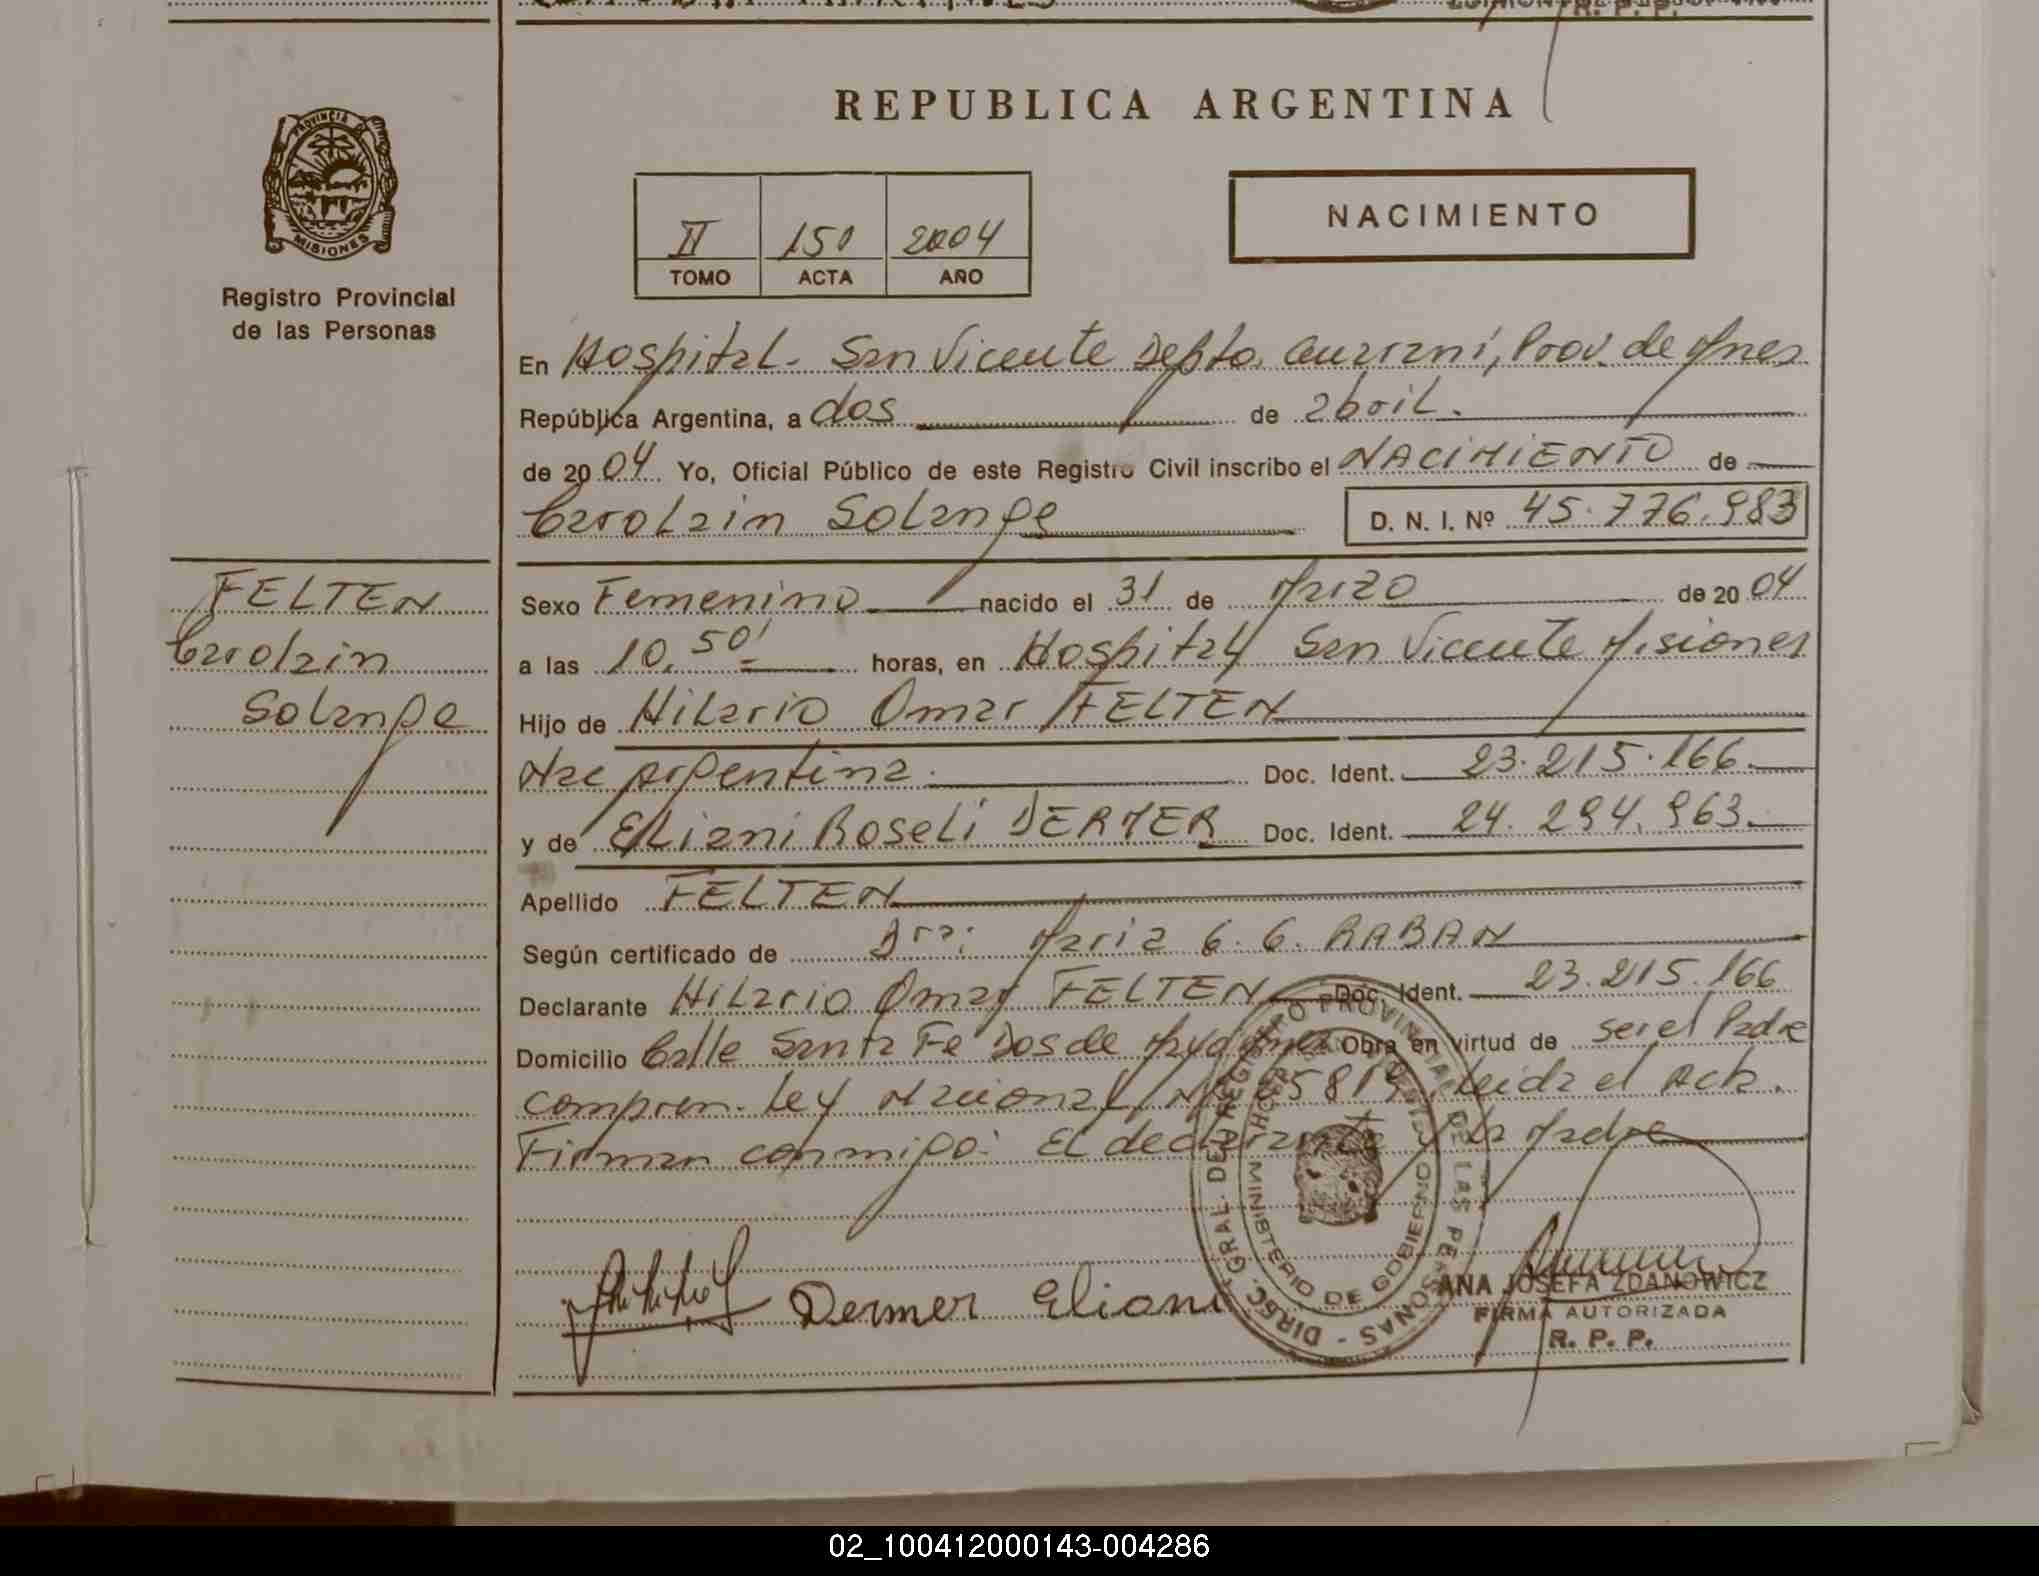 REPUBLICA ARGENTINA
PROVINCIA DE
MISIONES
Registro Provincial
de las Personas
II 150 2004
TOMO ACTA AÑO
NACIMIENTO
En Hospital. San Vicente Depto. Guarani, Prov. de Mnes
República Argentina, a dos de abril.
de 2004 Yo, Oficial Público de este Registro Civil inscribo el NACIMIENTO de
Carolain Solange D. N. I. Nº 45.776.983
FELTEN
Carolain
Solange
Sexo Femenino nacido el 31 de Marzo de 2004
a las 10,50' horas, en Hospital San Vicente Misiones
Hijo de Hilario Omar FELTEN
Nac Argentina. Doc. Ident. 23.215.166.
y de Eliani Roseli DERMER Doc. Ident. 24.294.963.
Apellido FELTEN
Según certificado de Dra: Maria G. G. RABAN
Declarante Hilario Omar FELTEN Doc. Ident. 23.215.166
Domicilio Calle Santa Fe Dos de Mayo Obra en virtud de ser el Padre
compren. Ley Nacional Nº 25819. Leida el Acta.
Firman conmigo: El declarante y la Madre
Dermer Eliani
DIREC. GRAL. DEL REGISTRO PROVINCIAL DE LAS PERSONAS
MINISTERIO DE GOBIERNO
ANA JOSEFA ZDANOWICZ
FIRMA AUTORIZADA
R. P. P.
02_100412000143-004286